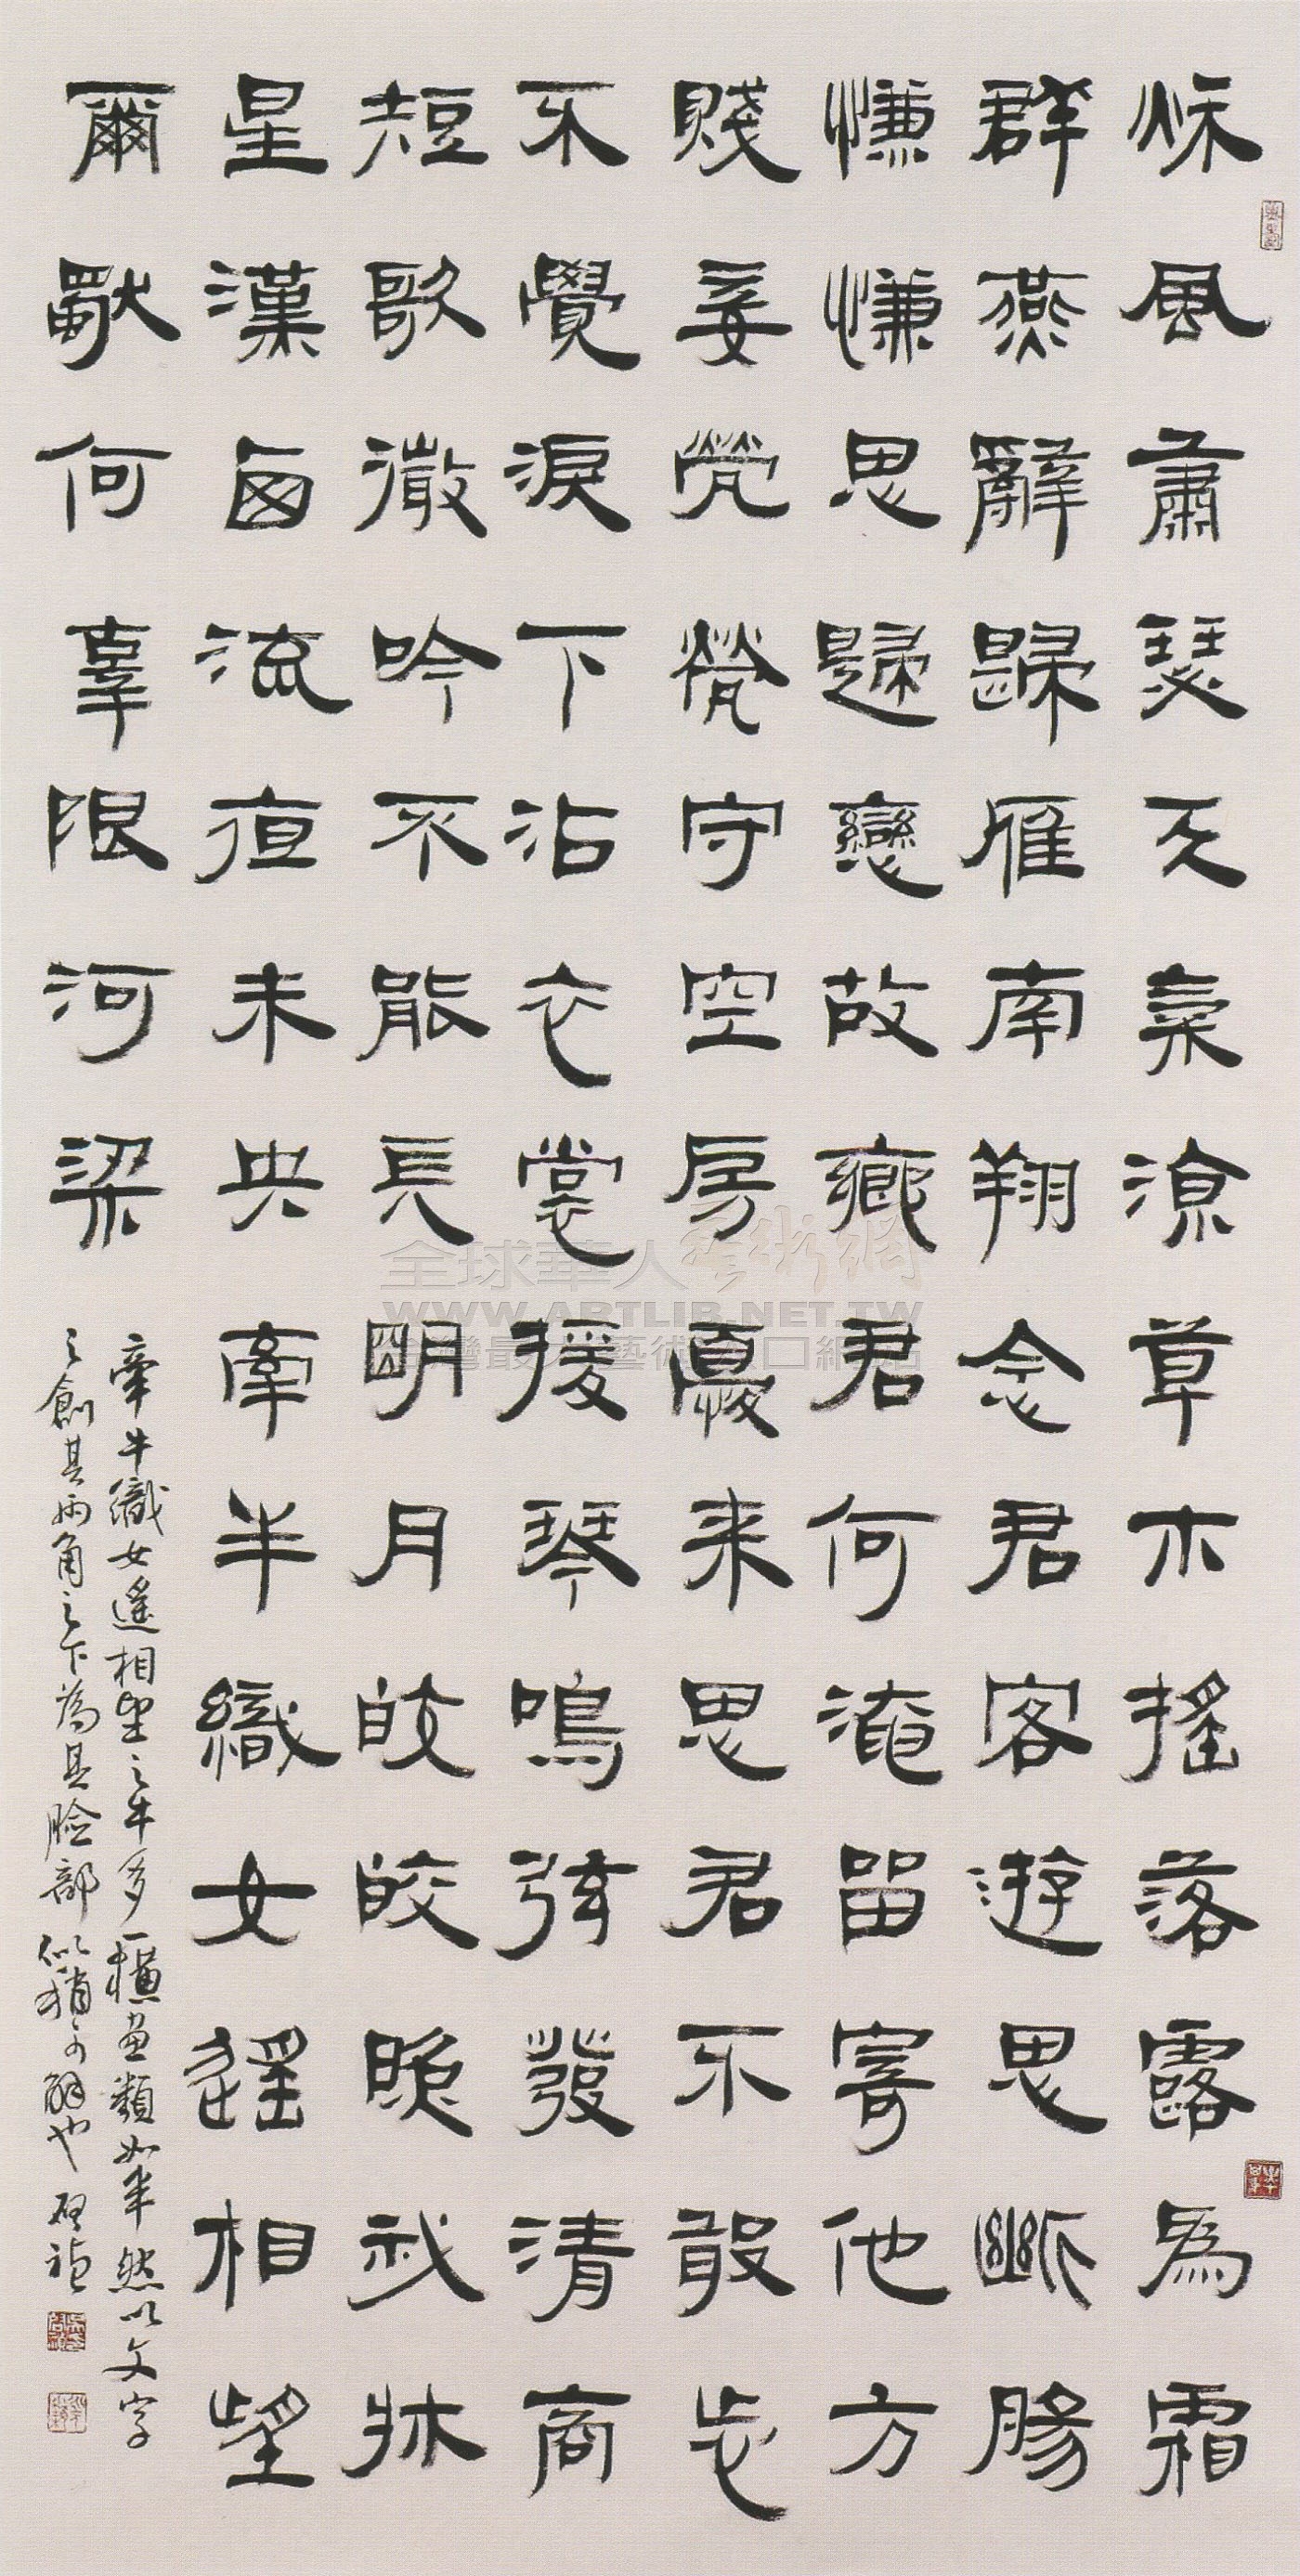 秋風蕭瑟天氣涼草木搖落露為霜
群燕辭歸雁南翔念君客遊思斷腸
慊慊思歸戀故鄉君何淹留寄他方
賤妾煢煢守空房憂來思君不敢忘
不覺淚下沾衣裳援琴鳴弦發清商
短歌微吟不能長明月皎皎照我牀
星漢西流夜未央牽牛織女遙相望
爾獨何辜限河梁
牽牛織女遙相望之牛多一橫畫類如半然以文字
之創其兩角之下為其臉部似猶可解也
全球華人藝術網
WWW.ARTLIB.NET.TW
台灣最大藝術入口網站